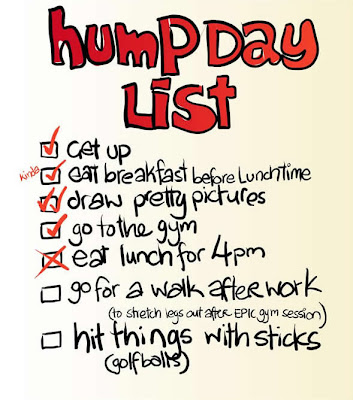 hump Day
List
get up
kinda eat breakfast before Lunchtime
draw pretty pictures
go to the gym
eat lunch for 4pm
go for a walk after work
(to stretch legs out after EPIC gym session)
hit things with sticks
(golf balls)